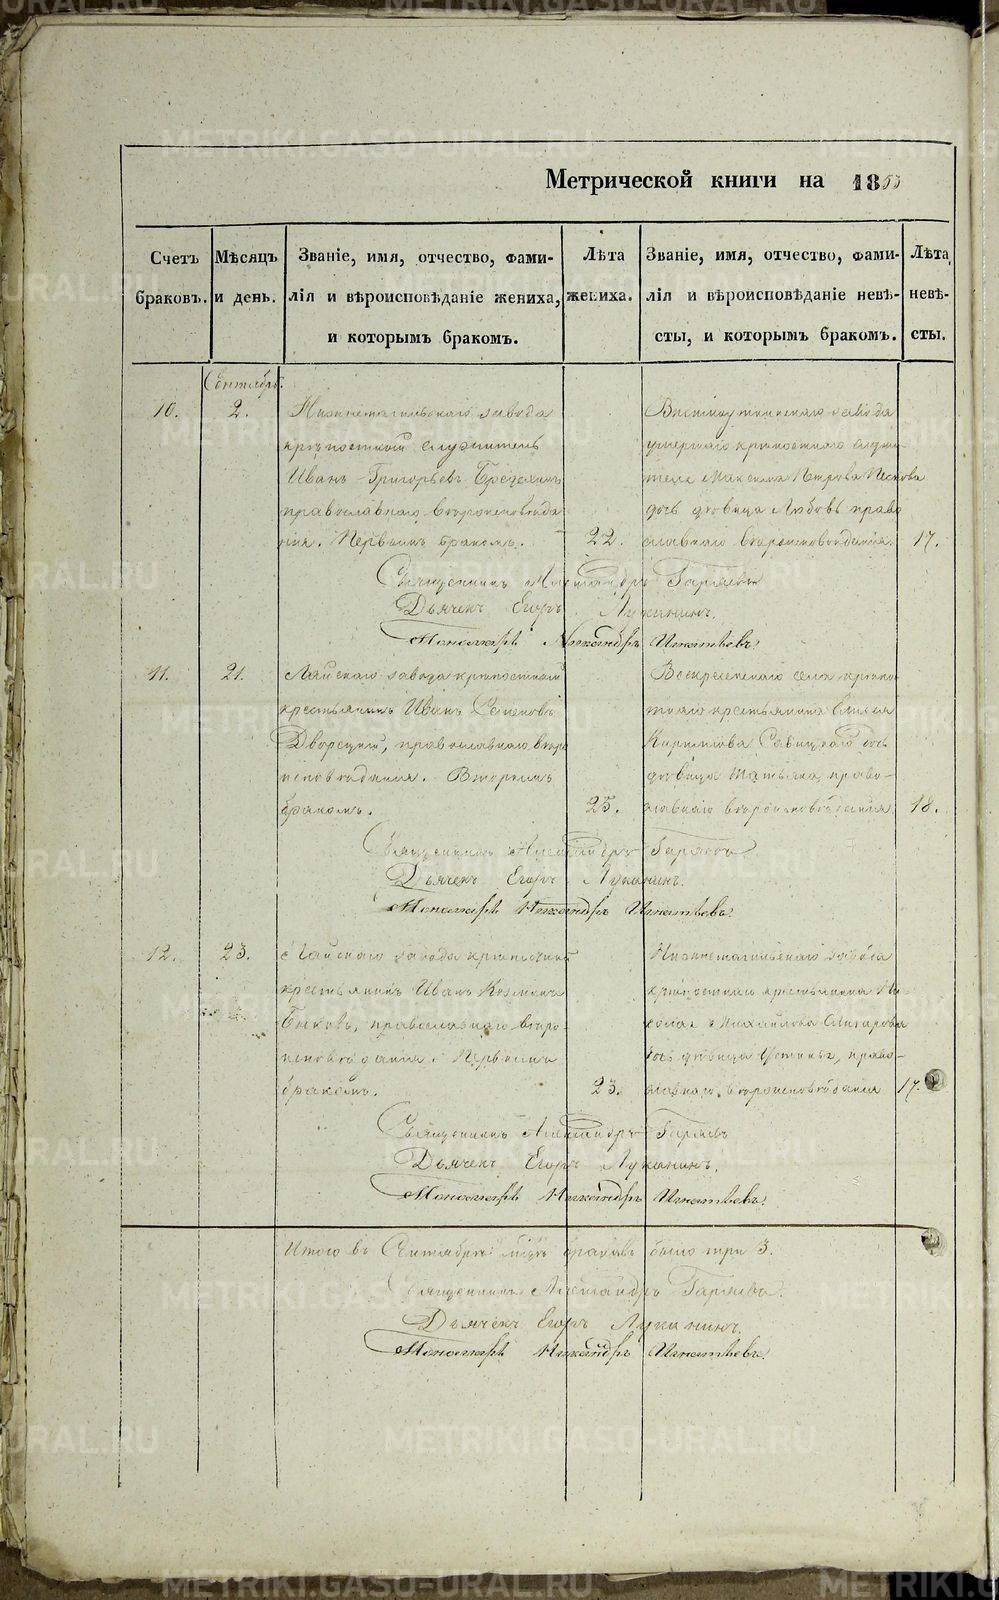 Метрической книги на 1853
Счетъ браковъ.
Мѣсяцъ и день.
Званіе, имя, отчество, фами-
лія и вѣроисповѣданіе жениха,
и которымъ бракомъ.
Лѣта жениха.
Званіе, имя, отчество, фами-
лія и вѣроисповѣданіе невѣ-
сты, и которымъ бракомъ.
Лѣта невѣ-
сты.
Сентябрь.
10.
2.
Нижнетагильскаго завода
крѣпостный служитель
Иванъ Григорьевъ
православнаго вѣроисповѣда
нія. Первымъ бракомъ.
22.
завода
умершаго крѣпостнаго служи-
теля Максима Петрова Пескова
дочь дѣвица Любовь право
славнаго вѣроисповѣданія.
17.
Священникъ Александръ Гаряевъ
Дьячекъ Егоръ Луканинъ.
Пономарь Никандръ Игнатьевъ.
11.
21.
Лайскаго завода крѣпостный
крестьянинъ Иванъ Семеновъ
Дворецкій, православнаго вѣро
исповѣданія. Вторымъ
бракомъ.
25.
Воскресенскаго села крѣпо
стнаго крестьянина Елисея
Кирилова Савицкаго дочь
дѣвица Татьяна, право-
славнаго вѣроисповѣданія
18.
Священникъ Александръ Гаряевъ
Дьячекъ Егоръ Луканинъ.
Пономарь Никандръ Игнатьевъ.
12.
23.
Лайскаго завода крѣпостный
крестьянинъ Иванъ Козминъ
Быковъ, православнаго вѣро-
исповѣданія. Первымъ
бракомъ.
23.
Нижнетагильскаго завода
крѣпостнаго крестьянина Ни
колая Михайлова
дочь дѣвица Устинья, право-
славнаго вѣроисповѣданія
17.
Священникъ Александръ Гаряевъ
Дьячекъ Егоръ Луканинъ.
Пономарь Никандръ Игнатьевъ.
Итого въ Сентябрѣ мцѣ браковъ было три 3.
Священникъ Александръ Гаряевъ.
Дьячекъ Егоръ Луканинъ.
Пономарь Никандръ Игнатьевъ.
METRIKI.GASO-URAL.RU